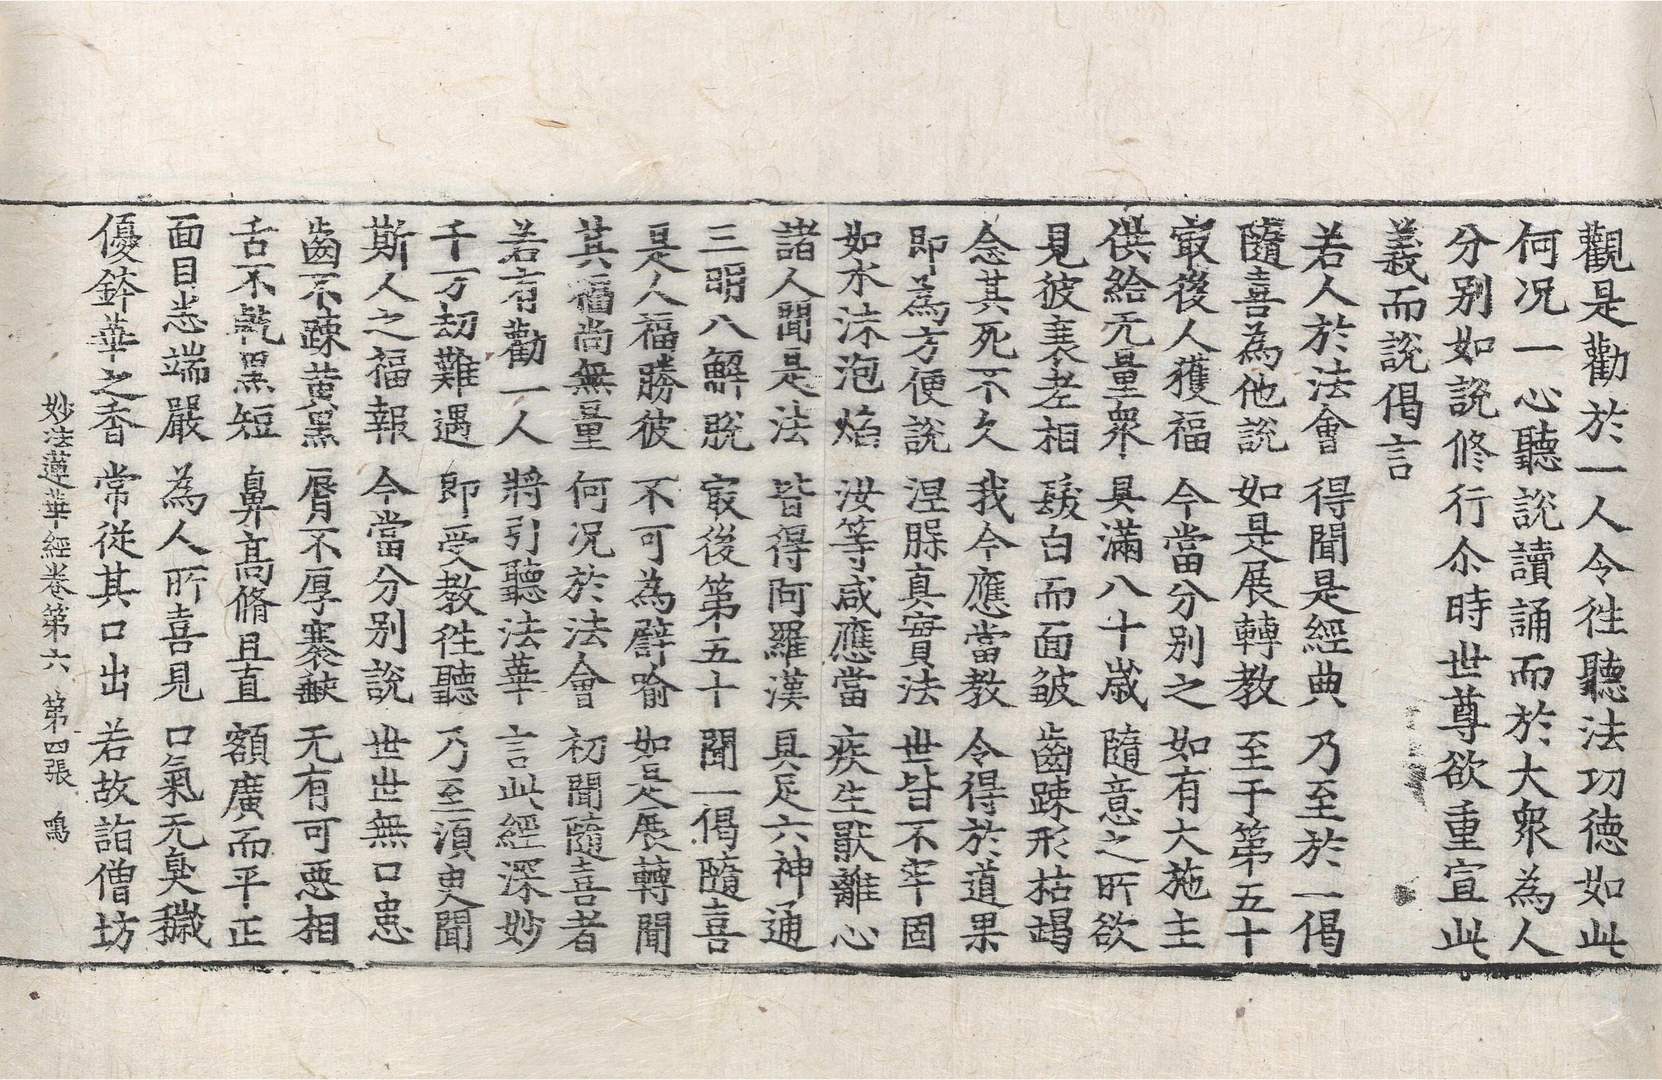 觀是勸於一人令徃聽法功德如此
何况一心聽說讀誦而於大衆為人
分别如說修行尒時世尊欲重宣此
義而說偈言
若人於法會 得聞是經典 乃至於一偈
隨喜為他說 如是展轉教 至于第五十
㝡後人獲福 今當分别之 如有大施主
供給无量衆 具滿八十歲 隨意之所欲
見彼衰老相 髮白而面皺 齒踈形枯竭
念其死不久 我今應當教 令得於道果
即為方便說 涅脲真實法 世皆不牢固
如水沫泡焰 汝等咸應當 疾生猒離心
諸人聞是法 皆得阿羅漢 具足六神通
三明八解脫 㝡後第五十 聞一偈隨喜
是人福勝彼 不可為譬喻 如是展轉聞
其福尚無量 何况於法會 初聞隨喜者
若有勸一人 將引聽法華 言此經深妙
千万劫難遇 即受教徃聽 乃至湏臾聞
斯人之福報 今當分别說 世世無口患
齒不踈黄黑 脣不厚褰缺 无有可惡相
舌不乾黑短 鼻髙脩且直 額廣而平正
面目悉端嚴 為人所喜見 口氣无臭穢
優鉢華之香 常從其口出 若故詣僧坊
妙法蓮華經卷第六 第四張 鳴